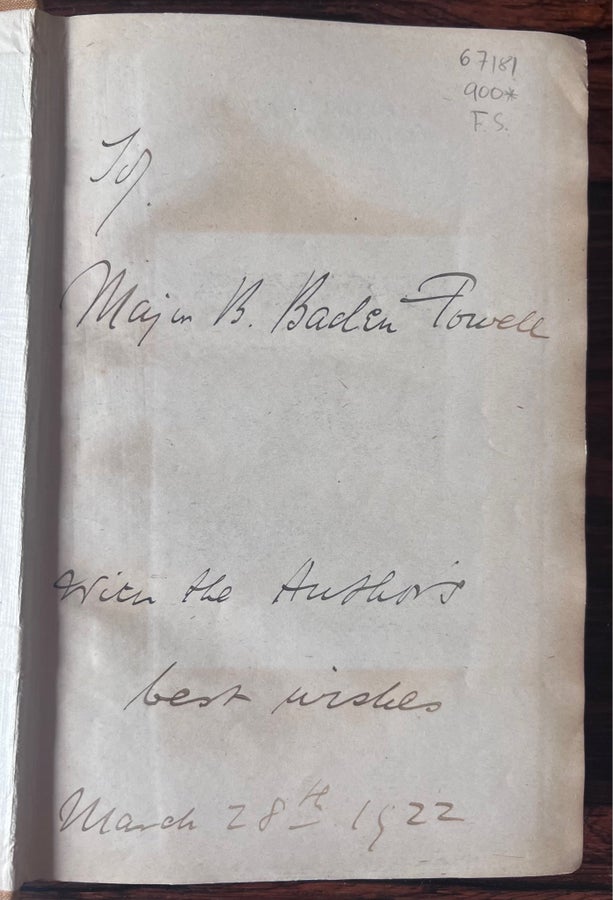 67181
900*
F.S.
To
Major B. Baden Powell
With the Author's
best wishes
March 28th 1922